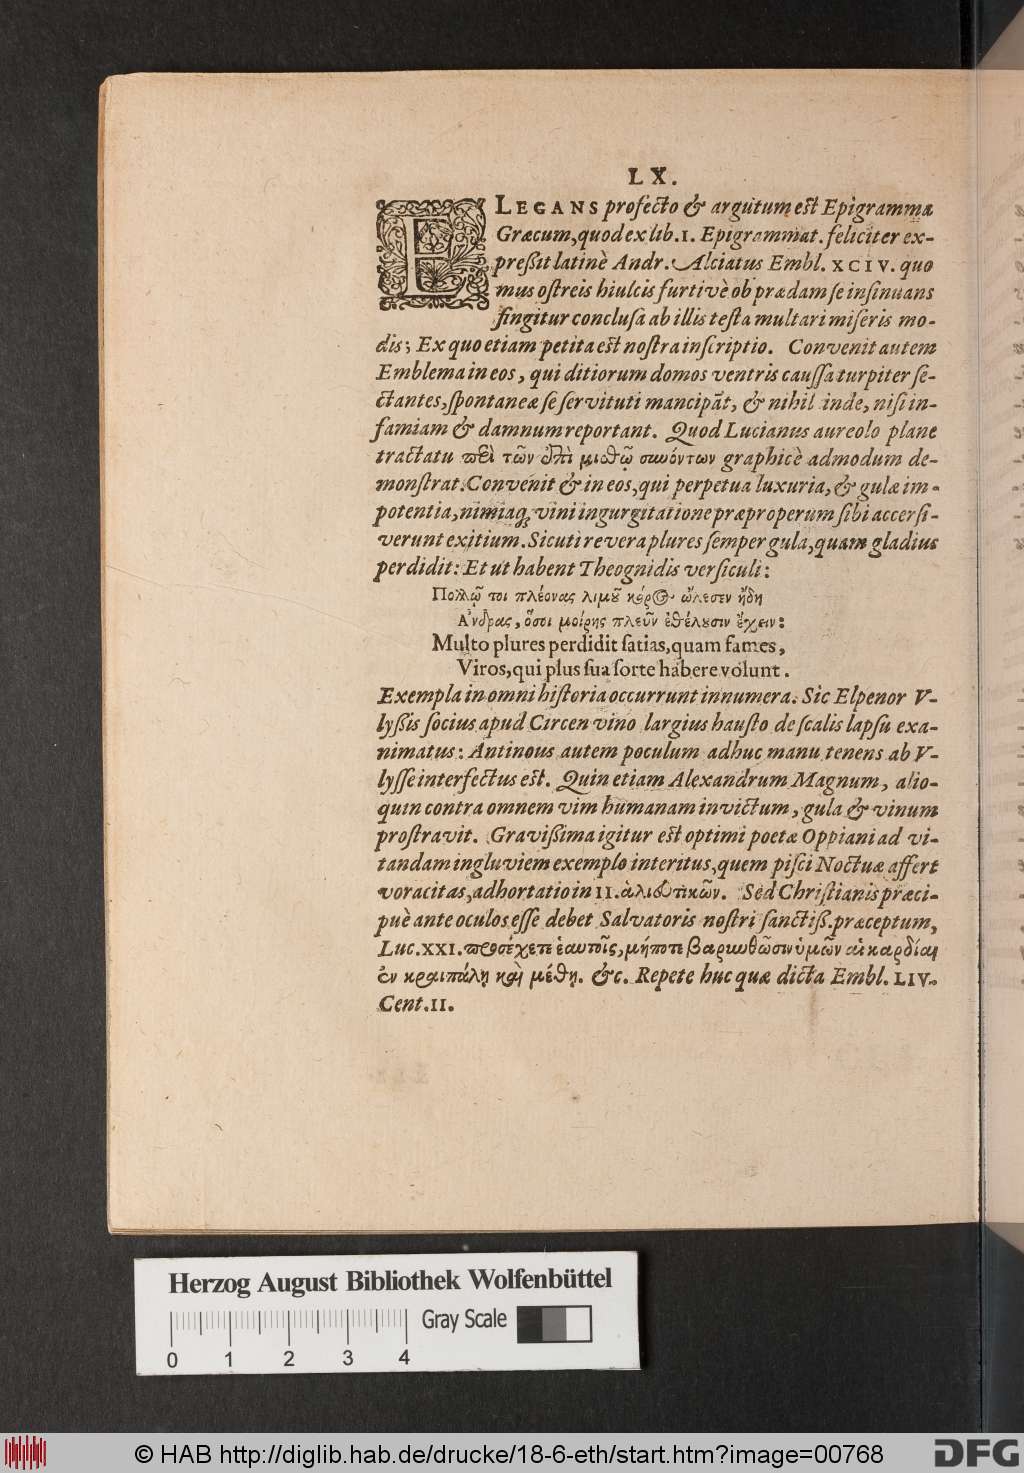 LX.
ELEGANS profecto & argutum est Epigramma
Græcum, quod ex lib. I. Epigrammat. feliciter ex-
preßit latinè Andr. Alciatus Embl. XCIV. quo
mus ostreis hiulcis furtivè ob prædam se insinuans
fingitur conclusa ab illis testa multari miseris mo-
dis; Ex quo etiam petita est nostra inscriptio. Convenit autem
Emblema in eos, qui ditiorum domos ventris caussa turpiter se-
ctantes, spontaneæ se servituti mancipāt, & nihil inde, nisi in-
famiam & damnum reportant. Quod Lucianus aureolo plane
tractatu περὶ τῶν ἐπὶ μισθῷ συνόντων graphicè admodum de-
monstrat. Convenit & in eos, qui perpetua luxuria, & gulæ im-
potentia, nimiaq; vini ingurgitatione præproperum sibi accersi-
verunt exitium. Sicuti revera plures semper gula, quam gladius
perdidit: Et ut habent Theognidis versiculi:
Πολλῷ τοι πλέονας λιμοῦ κόρος ὤλεσεν ἤδη
Ἄνδρας, ὅσοι μοίρης πλεῦν ἐθέλουσιν ἔχειν:
Multo plures perdidit satias, quam fames,
Viros, qui plus sua sorte habere volunt.
Exempla in omni historia occurrunt innumera. Sic Elpenor V-
lyßis socius apud Circen vino largius hausto de scalis lapsu exa-
nimatus: Antinous autem poculum adhuc manu tenens ab V-
lysse interfectus est. Quin etiam Alexandrum Magnum, alio-
quin contra omnem vim humanam invictum, gula & vinum
prostravit. Gravißima igitur est optimi poetæ Oppiani ad vi-
tandam ingluviem exemplo interitus, quem pisci Noctuæ affert
voracitas, adhortatio in II. ἁλιευτικῶν. Sed Christianis præci-
puè ante oculos esse debet Salvatoris nostri sanctiß. præceptum,
Luc. XXI. προσέχετε ἑαυτοῖς, μήποτε βαρυνθῶσιν ὑμῶν αἱ καρδίαι
ἐν κραιπάλῃ καὶ μέθῃ. &c. Repete huc quæ dicta Embl. LIV.
Cent. II.
Herzog August Bibliothek Wolfenbüttel
Gray Scale
0 1 2 3 4
© HAB http://diglib.hab.de/drucke/18-6-eth/start.htm?image=00768
DFG